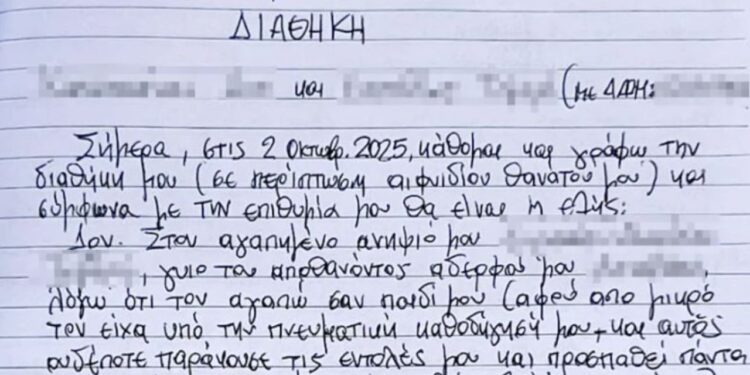 ΔΙΑΘΗΚΗ
και (με ΔΑΦΗ:
Σήμερα, στις 2 Οκτωβ. 2025, κάθομαι και γράφω την
διαθήκη μου (σε περίπτωση αιφνιδίου θανάτου μου) και
σύμφωνα με την επιθυμία μου θα είναι η εξής:
1ον. Στον αγαπημένο ανηψιό μου
, γυιο του αποθανόντος αδερφού μου
λόγω ότι τον αγαπώ σαν παιδί μου (αφού απο μικρό
τον είχα υπό την πνευματική καθοδήγησή μου, και αυτός
ουδέποτε παράκουσε τις εντολές μου και προσπαθεί πάντα